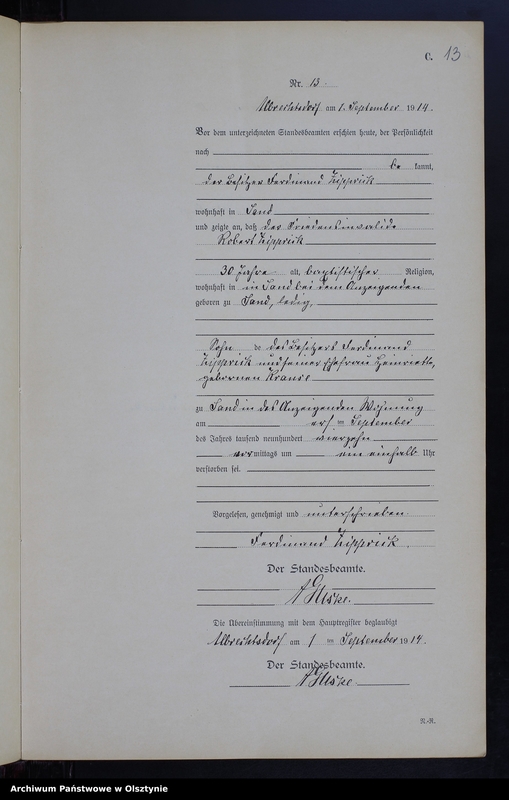 C. 13
Nr. 13.
Albrechtsdorf am 1. September 1914.
Vor dem unterzeichneten Standesbeamten erschien heute, der Persönlichkeit
nach
be kannt,
der Besitzer Ferdinand Zipprick
wohnhaft in Sand
und zeigte an, daß der Friedensinvalide
Robert Zipprick
30 Jahre alt, baptistischer Religion,
wohnhaft in in Sand bei dem Anzeigenden
geboren zu Sand, ledig,
Sohn de des Besitzers Ferdinand
Zipprick und seiner Ehefrau Heinriette,
geborenen Krause
zu Sand in des Anzeigenden Wohnung
am ersten September
des Jahres tausend neunhundert vierzehn
vormittags um ein einhalb Uhr
verstorben sei.
Vorgelesen, genehmigt und unterschrieben.
Ferdinand Zipprick.
Der Standesbeamte.
Die Übereinstimmung mit dem Hauptregister beglaubigt
Albrechtsdorf am 1 ten September 1914.
Der Standesbeamte.
R.-R.
Archiwum Państwowe w Olsztynie